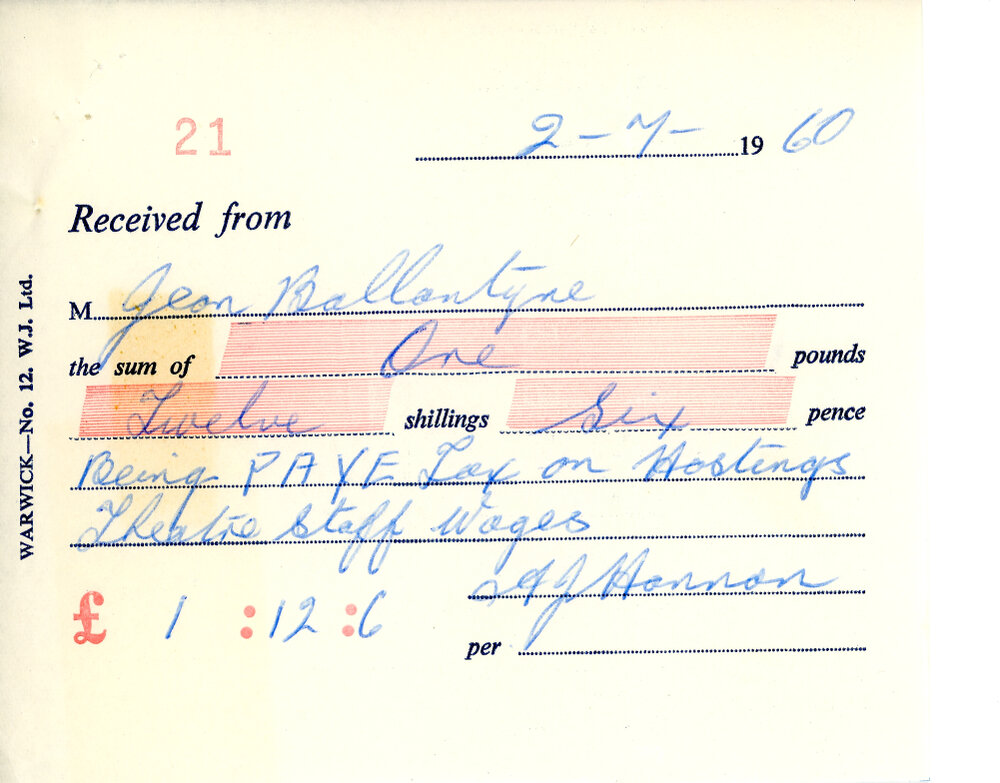 21
2 - 7 - 1960
Received from
M Jean Ballantyne
the sum of One pounds
Twelve shillings Six pence
Being PAYE Tax on Hastings
Theatre Staff Wages
AJ Hannan
£ 1 : 12 : 6
per
WARWICK—No. 12. W.J. Ltd.